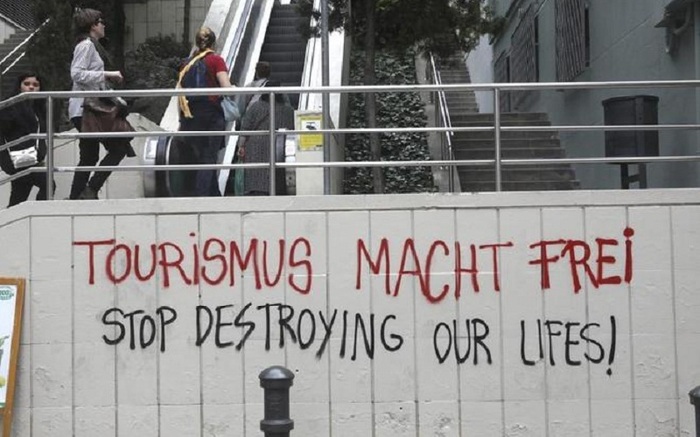 TOURiSMUS MACHT FREi
STOP DESTROYING OUR LIFES!